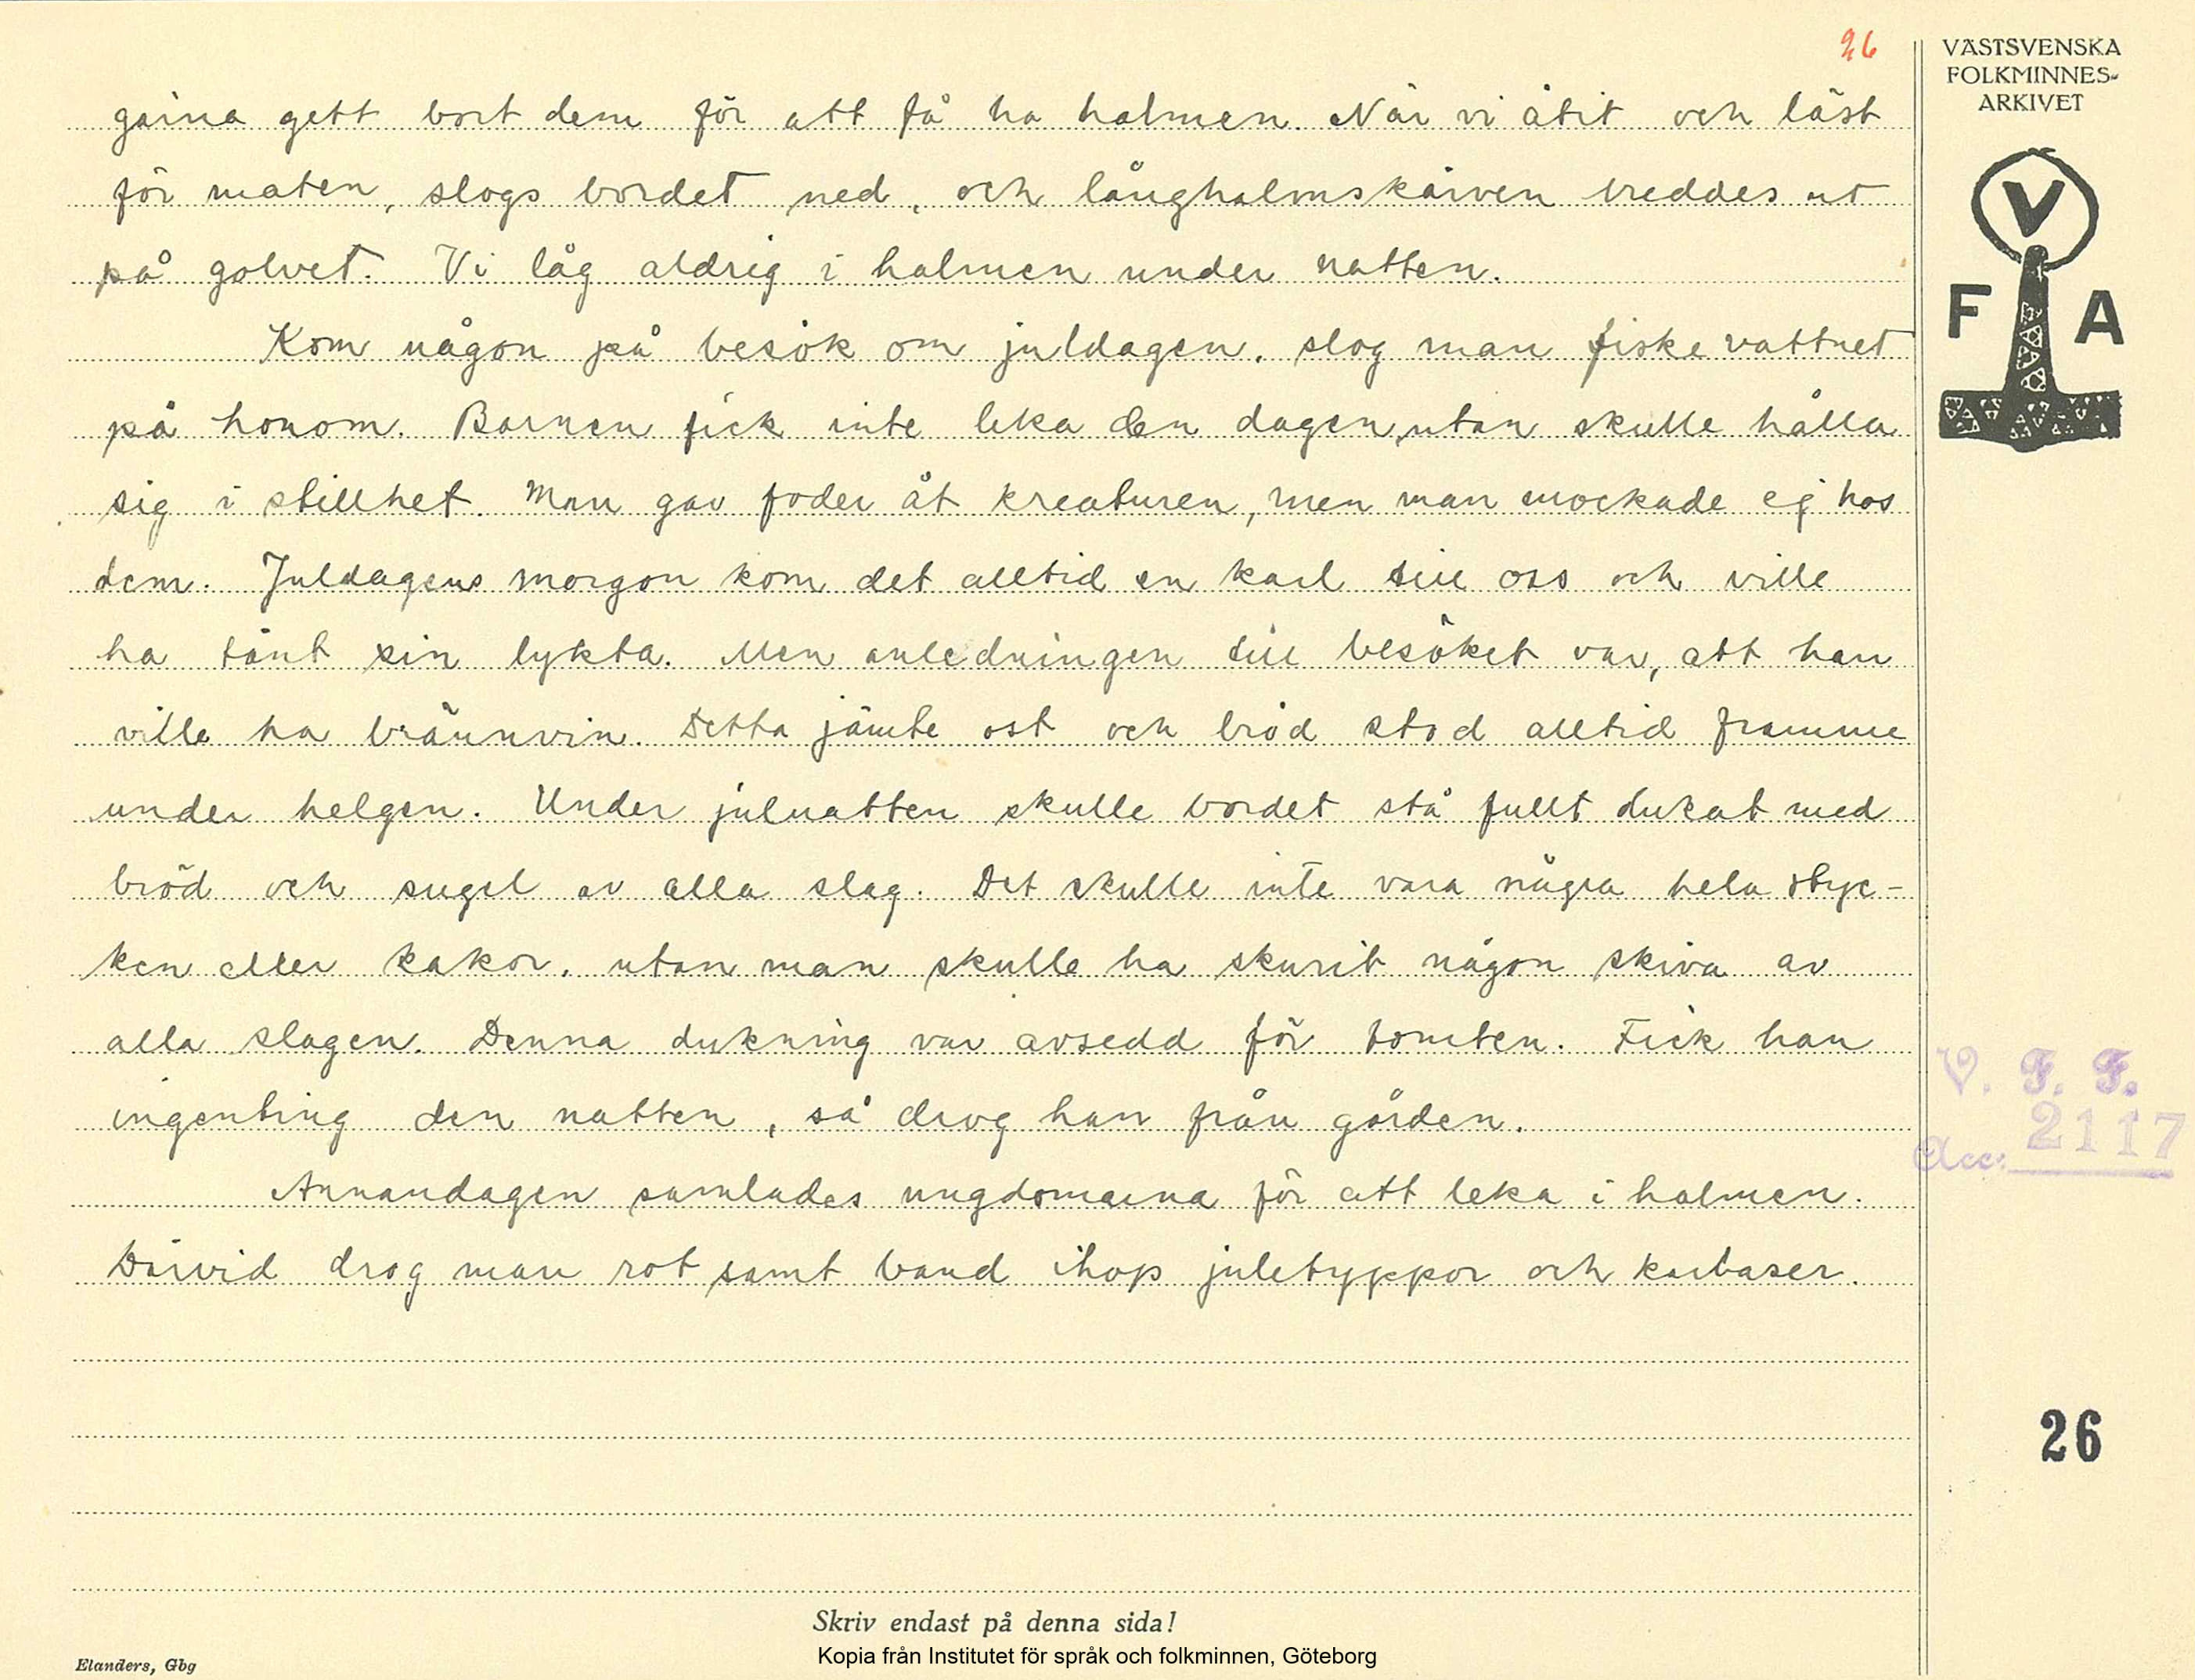 26
VÄSTSVENSKA
FOLKMINNES-
ARKIVET
gärna gett bort dem för att få ha halmen. När vi ätit och läst
för maten, slogs bordet ned, och långhalmskärven breddes ut
på golvet. Vi låg aldrig i halmen under natten.
Kom någon på besök om juldagen, slog man fiskevattnet
på honom. Barnen fick inte leka den dagen, utan skulle hålla
sig i stillhet. Man gav foder åt kreaturen, men man mockade ej hos
dem. Juldagens morgon kom det alltid en karl till oss och ville
ha tänt sin lykta. Men anledningen till besöket var, att han
ville ha brännvin. Detta jämte ost och bröd stod alltid framme
under helgen. Under julnatten skulle bordet stå fullt dukat med
bröd och sugel av alla slag. Det skulle inte vara några hela styc-
ken eller kakor, utan man skulle ha skurit någon skiva av
alla slagen. Denna dukning var avsedd för tomten. Fick han
ingenting den natten, så drog han från gården.
Annandagen samlades ungdomarna för att leka i halmen.
Därvid drog man rot samt band ihop juletyppor och karbaser.
V
F A
V. F. F.
Acc. 2117
26
Skriv endast på denna sida!
Kopia från Institutet för språk och folkminnen, Göteborg
Elanders, Gbg